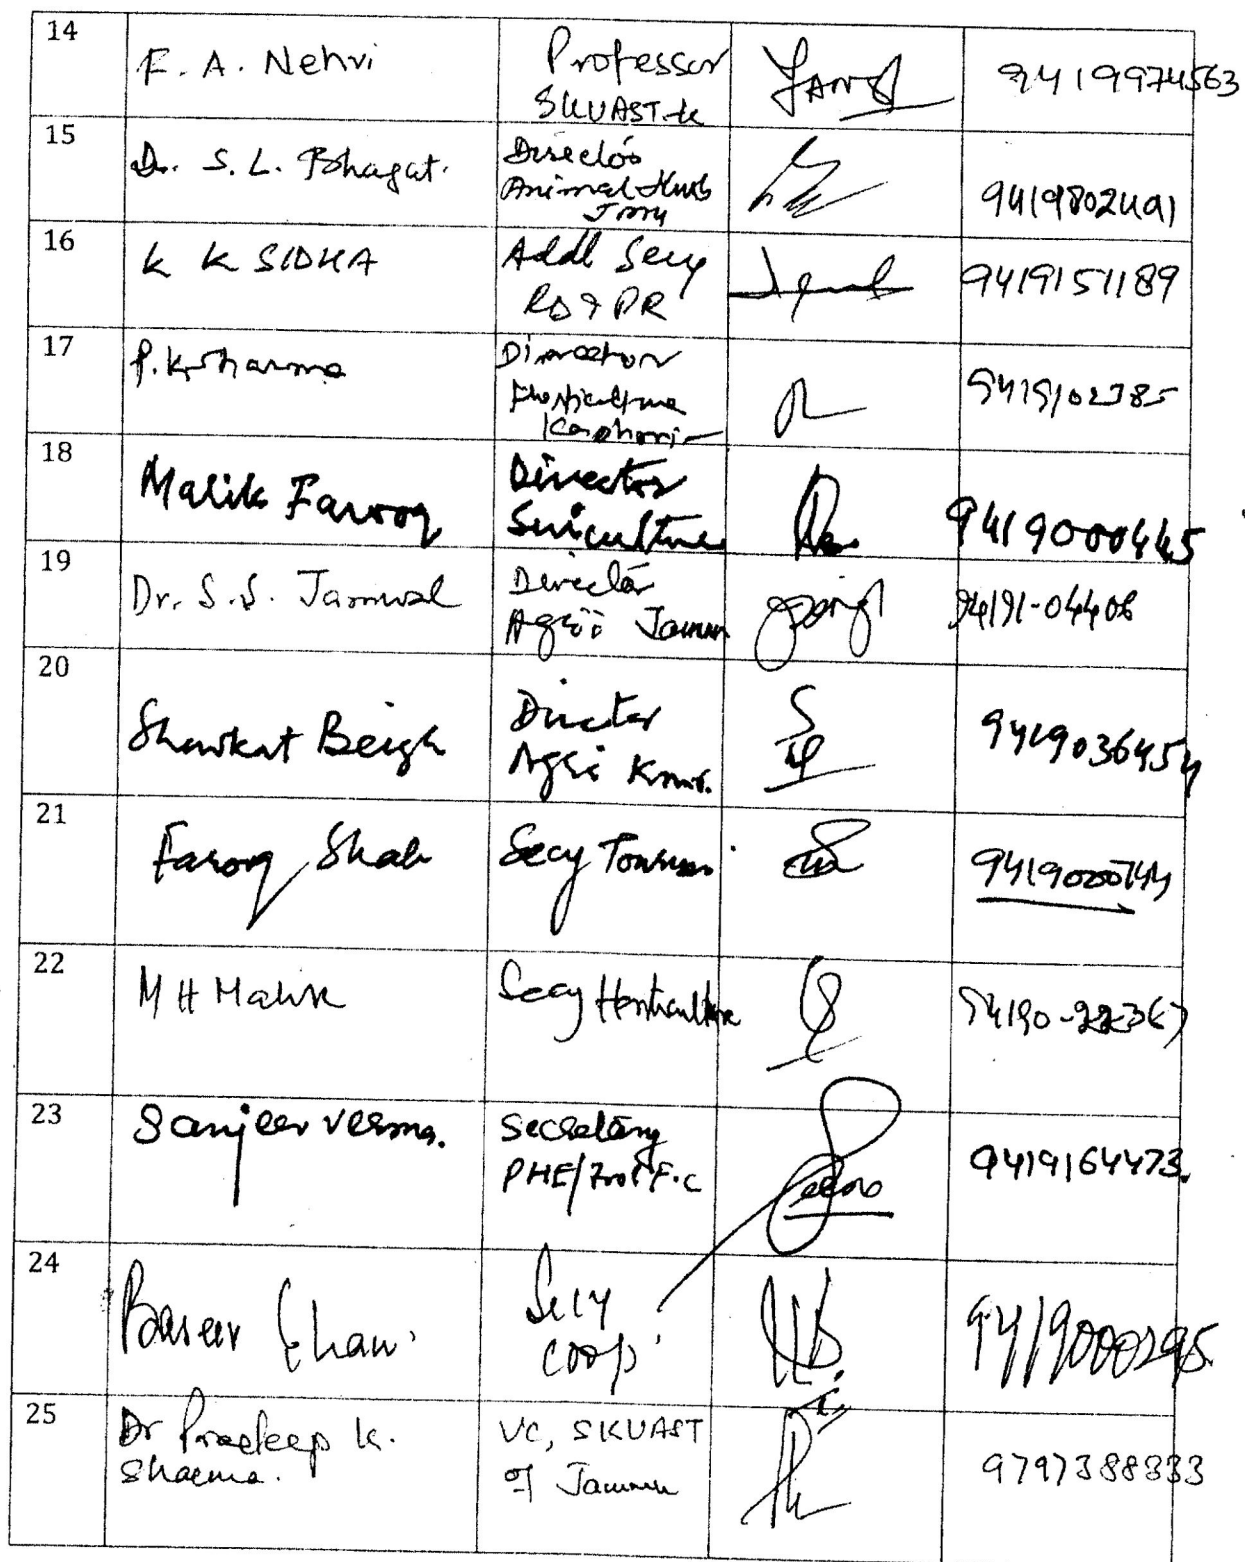 14
F. A. Nehvi
Professor
SKUAST-K
9419974563
15
Dr. S. L. Bhagat.
Director
Animal Husb
Jmu
9419802491
16
K K SIDHA
Addl Secy
RD & PR
9419151189
17
P. K. Sharma
Director
Horticulture
Kashmir
9419102385
18
Malik Farooq
Director
Sericulture
9419000445
19
Dr. S. S. Jamwal
Director
Agri: Jammu
94191-04406
20
Shawkat Beigh
Director
Agri Kmr.
9419036454
21
Farooq Shah
Secy Tourism
9419000744
22
M H Malik
Secy Horticulture
94190-22367
23
Sanjeev Verma.
Secretary
PHE/I&F.C
9419164473.
24
Baseer Khan
Secy
Coop
9419000295
25
Dr Pradeep K.
Sharma.
VC, SKUAST
of Jammu
9797388333